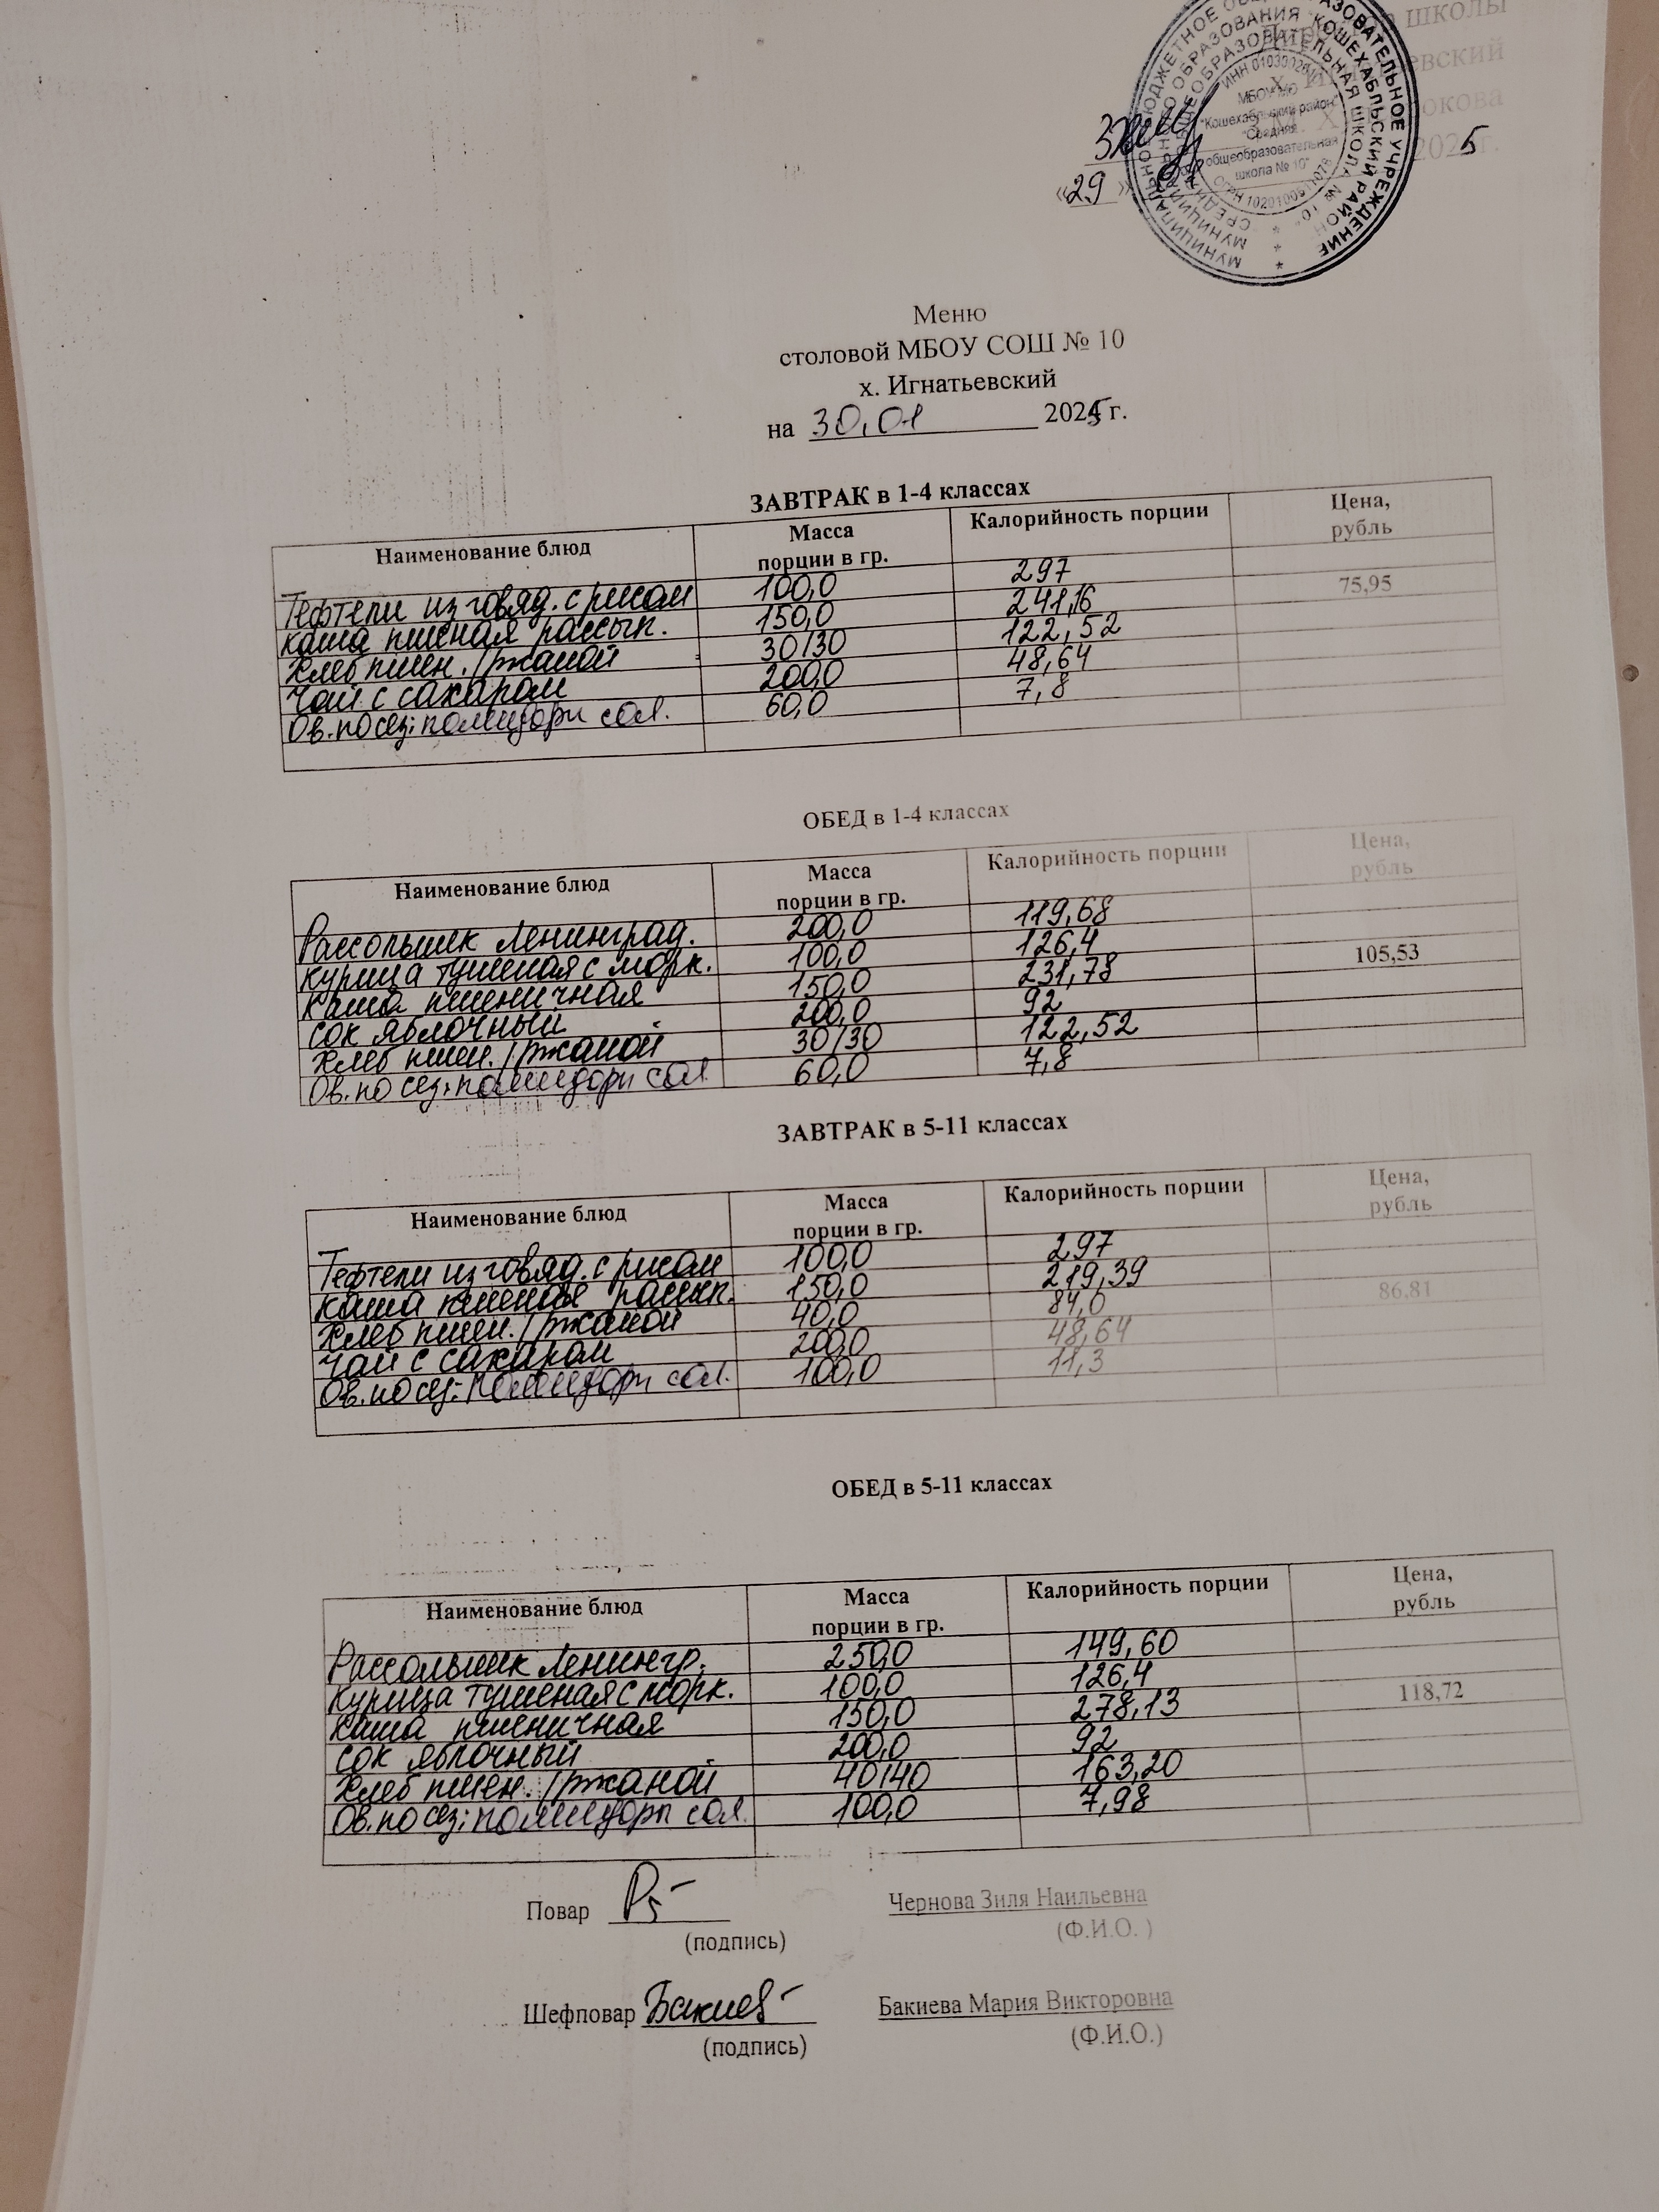 Директор школы
х. Игнатьевский
«29» 2025 г.
МУНИЦИПАЛЬНОЕ БЮДЖЕТНОЕ ОБЩЕОБРАЗОВАТЕЛЬНОЕ УЧРЕЖДЕНИЕ
МБОУ МО
"Кошехабльский район"
"Средняя
общеобразовательная
школа № 10"
Меню
столовой МБОУ СОШ № 10
х. Игнатьевский
на 30,01 2025 г.
ЗАВТРАК в 1-4 классах
Наименование блюд Масса порции в гр. Калорийность порции Цена, рубль
Тефтели из говяд. с рисом 100,0 297 75,95
каша пшеная рассып. 150,0 241,16
Хлеб пшен./ржаной 30/30 122,52
Чай с сахаром 200,0 48,64
Ов. по сез: помидоры сол. 60,0 7,8
ОБЕД в 1-4 классах
Наименование блюд Масса порции в гр. Калорийность порции Цена, рубль
Рассольник Ленинград. 200,0 119,68
курица тушеная с морк. 100,0 126,4 105,53
каша пшеничная 150,0 231,78
сок яблочный 200,0 92
Хлеб пшен./ржаной 30/30 122,52
Ов. по сез: помидоры сол 60,0 7,8
ЗАВТРАК в 5-11 классах
Наименование блюд Масса порции в гр. Калорийность порции Цена, рубль
Тефтели из говяд. с рисом 100,0 297
каша пшеная рассып. 150,0 219,39 86,81
Хлеб пшен./ржаной 40,0 84,0
Чай с сахаром 200,0 48,64
Ов. по сез: помидоры сол. 100,0 11,3
ОБЕД в 5-11 классах
Наименование блюд Масса порции в гр. Калорийность порции Цена, рубль
Рассольник Ленингр. 250,0 149,60
курица тушеная с морк. 100,0 126,4 118,72
каша пшеничная 150,0 278,13
сок яблочный 200,0 92
Хлеб пшен./ржаной 40/40 163,20
Ов. по сез: помидоры сол. 100,0 7,98
Повар Чернова Зиля Наильевна
(подпись) (Ф.И.О. )
Шефповар Бакиева Мария Викторовна
(подпись) (Ф.И.О.)